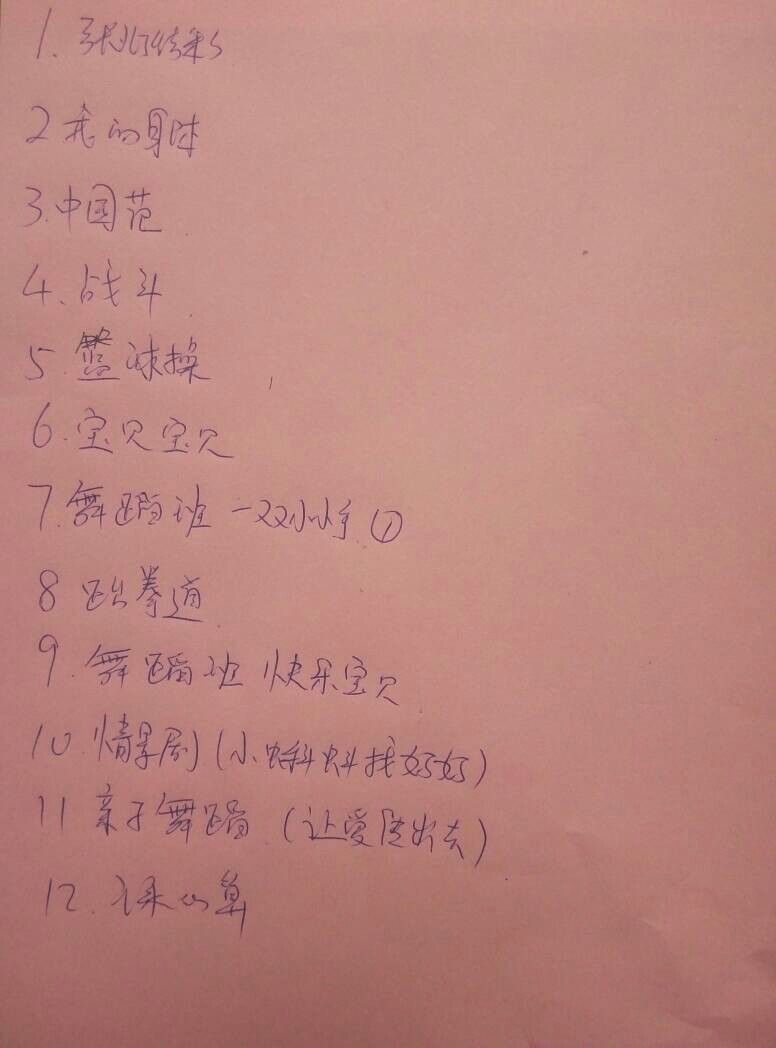 1. 张灯结彩
2 我的身体
3.中国范
4、战斗
5.篮球操
6.宝贝宝贝
7.舞蹈班 一双小小手 ①
8 跆拳道
9.舞蹈班 快乐宝贝
10.情景剧(小蝌蚪找妈妈)
11 亲子舞蹈 (让爱传出去)
12.珠心算